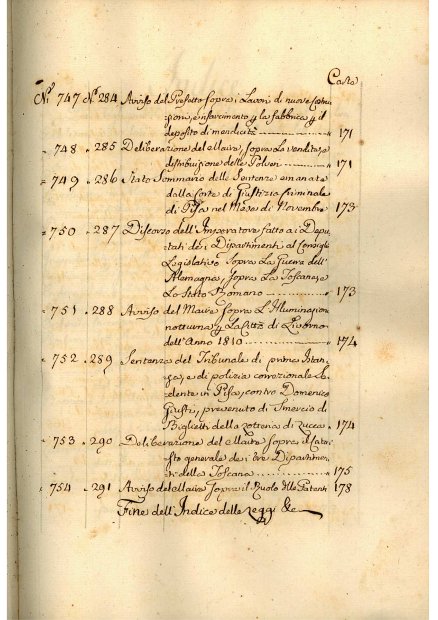 Carte
N.º 747 N.º 284 Avviso del Prefetto sopra i Lavori di nuove Costru-
zione, e risarcimento p la fabbrica p il
deposito di mendicità 171
" 748 " 285 Deliberazione del Maire, sopra La vendita e
distribuzione delle Polveri 171
" 749 " 286 Stato Sommario delle Sentenze emanate
dalla Corte di Giustizia Criminale
di Pisa nel Mese di Novembre 173
" 750 " 287 Discorso dell'Imperatore fatto ai Depu-
tati dei Dipartimenti al Consiglio
Legislativo Sopra La Guerra dell'
Alemagna, Sopra La Toscana, e
Lo Stato Romano 173
" 751 " 288 Avviso del Maire sopra L'Illuminazione
notturna p La Città di Livorno
dell'Anno 1810 174
" 752 " 289 Sentenza del Tribunale di prima Istan-
za, e di polizia correzionale Se-
dente in Pisa, contro Domenico
Giusti, prevenuto di Smercio di
Biglietti della Lotteria di Lucca 174
" 753 " 290 Deliberazione del Maire sopra il Cata-
sto generale dei tre Dipartimen-
ti della Toscana 175
" 754 " 291 Avviso del Maire Sopra il Ruolo delle Patenti 178
Fine dell'Indice delle Leggi &c